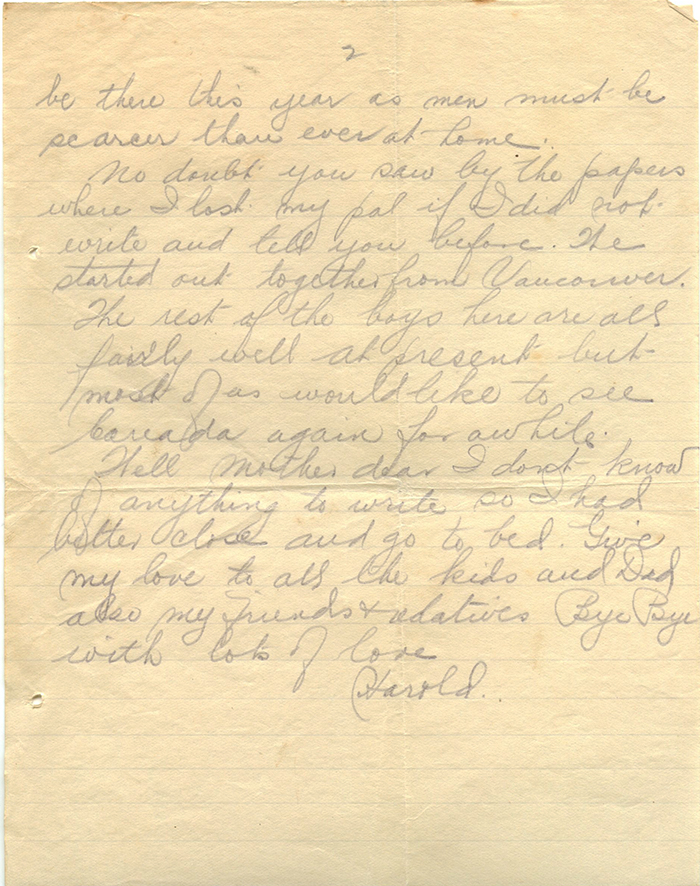 2
be there this year as men must be
scarcer than ever at home.
No doubt you saw by the papers
where I lost my pal if I did not
write and tell you before. We
started out together from Vancouver.
The rest of the boys here are all
fairly well at present but
most of us would like to see
Canada again for awhile.
Well Mother dear I don't know
of anything to write so I had
better close and go to bed. Give
my love to all the kids and Dad
also my friends & relatives Bye Bye
with lots of love
Harold.